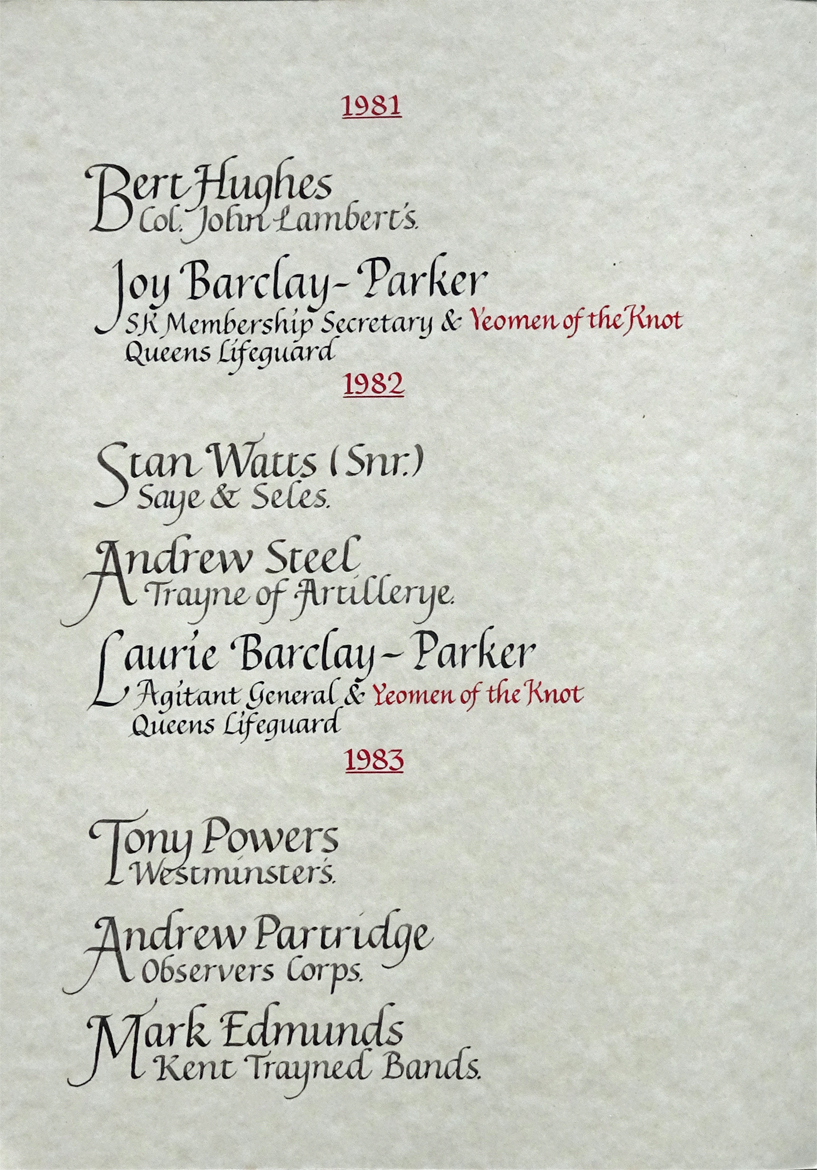 1981
Bert Hughes
Col. John Lambert's.
Joy Barclay-Parker
SK Membership Secretary & Yeomen of the Knot
Queens Lifeguard
1982
Stan Watts (Snr.)
Saye & Seles.
Andrew Steel
Trayne of Artillerye.
Laurie Barclay-Parker
Agitant General & Yeomen of the Knot
Queens Lifeguard
1983
Tony Powers
Westminster's.
Andrew Partridge
Observers Corps.
Mark Edmunds
Kent Trayned Bands.